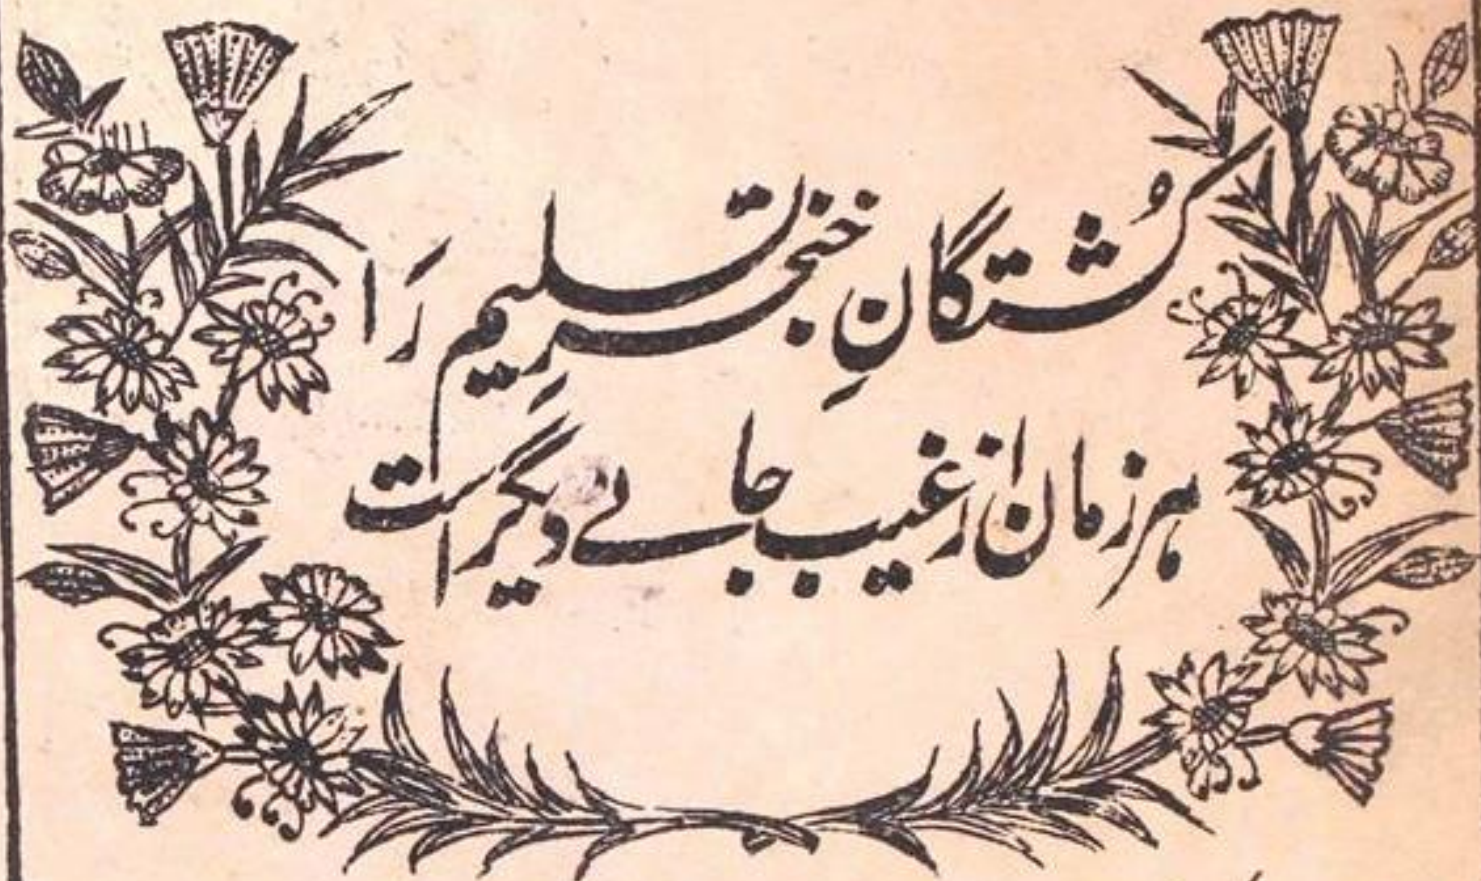 کُشتگانِ خنجرِ تسلیم رَا
ہر زمان از غیب جانے دیگر است